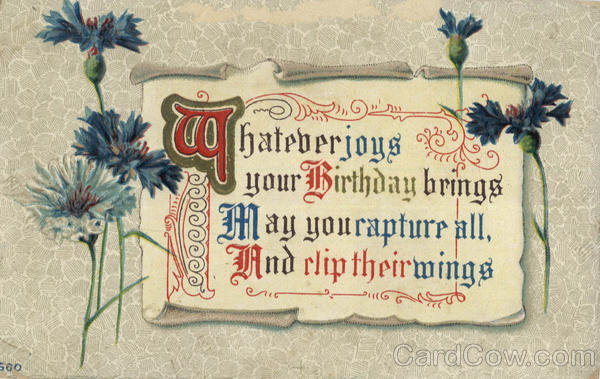 Whatever joys
your Birthday brings
May you capture all,
And clip their wings
560
CardCow.com